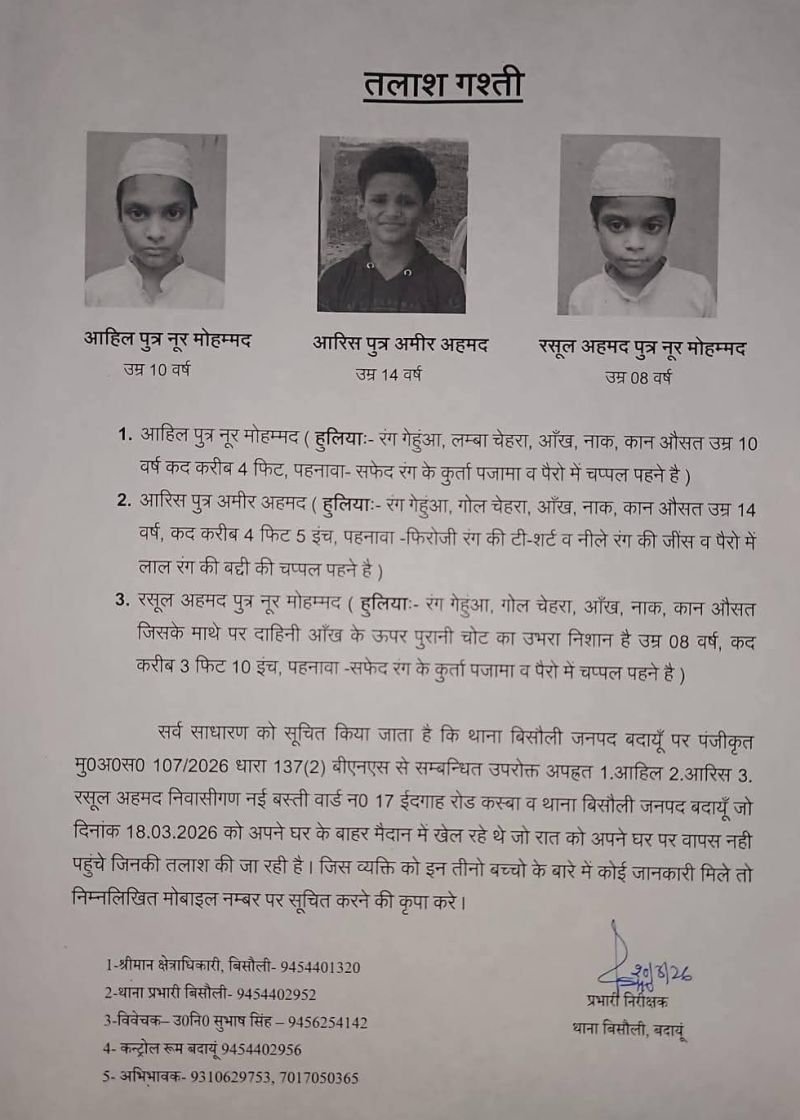 तलाश गश्ती
आहिल पुत्र नूर मोहम्मद
उम्र 10 वर्ष
आरिस पुत्र अमीर अहमद
उम्र 14 वर्ष
रसूल अहमद पुत्र नूर मोहम्मद
उम्र 08 वर्ष
1. आहिल पुत्र नूर मोहम्मद ( हुलियाः- रंग गेहुंआ, लम्बा चेहरा, आँख, नाक, कान औसत उम्र 10
वर्ष कद करीब 4 फिट, पहनावा- सफेद रंग के कुर्ता पजामा व पैरो में चप्पल पहने है )
2. आरिस पुत्र अमीर अहमद ( हुलियाः- रंग गेहुंआ, गोल चेहरा, आँख, नाक, कान औसत उम्र 14
वर्ष, कद करीब 4 फिट 5 इंच, पहनावा -फिरोजी रंग की टी-शर्ट व नीले रंग की जींस व पैरो में
लाल रंग की बद्दी की चप्पल पहने है )
3. रसूल अहमद पुत्र नूर मोहम्मद ( हुलियाः- रंग गेहुंआ, गोल चेहरा, आँख, नाक, कान औसत
जिसके माथे पर दाहिनी आँख के ऊपर पुरानी चोट का उभरा निशान है उम्र 08 वर्ष, कद
करीब 3 फिट 10 इंच, पहनावा -सफेद रंग के कुर्ता पजामा व पैरो में चप्पल पहने है )
सर्व साधारण को सूचित किया जाता है कि थाना बिसौली जनपद बदायूँ पर पंजीकृत
मु0अ0स0 107/2026 धारा 137(2) बीएनएस से सम्बन्धित उपरोक्त अपह्रत 1.आहिल 2.आरिस 3.
रसूल अहमद निवासीगण नई बस्ती वार्ड न0 17 ईदगाह रोड कस्बा व थाना बिसौली जनपद बदायूँ जो
दिनांक 18.03.2026 को अपने घर के बाहर मैदान में खेल रहे थे जो रात को अपने घर पर वापस नही
पहुंचे जिनकी तलाश की जा रही है । जिस व्यक्ति को इन तीनो बच्चो के बारे में कोई जानकारी मिले तो
निम्नलिखित मोबाइल नम्बर पर सूचित करने की कृपा करे ।
1-श्रीमान क्षेत्राधिकारी, बिसौली- 9454401320
2-थाना प्रभारी बिसौली- 9454402952
3-विवेचक– उ0नि0 सुभाष सिंह – 9456254142
4- कन्ट्रोल रूम बदायूं 9454402956
5- अभिभावक- 9310629753, 7017050365
प्रभारी निरीक्षक
थाना बिसौली, बदायूं